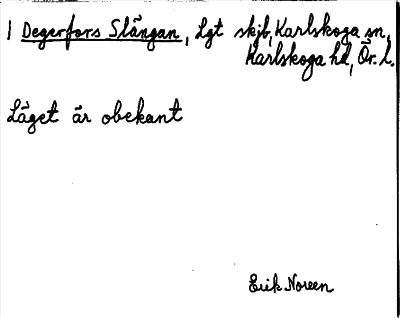 1 Degerfors Slängan, Lgt skjb, Karlskoga sn,
Karlskoga hd, Ör. l.
Läget är obekant
Erik Noreen